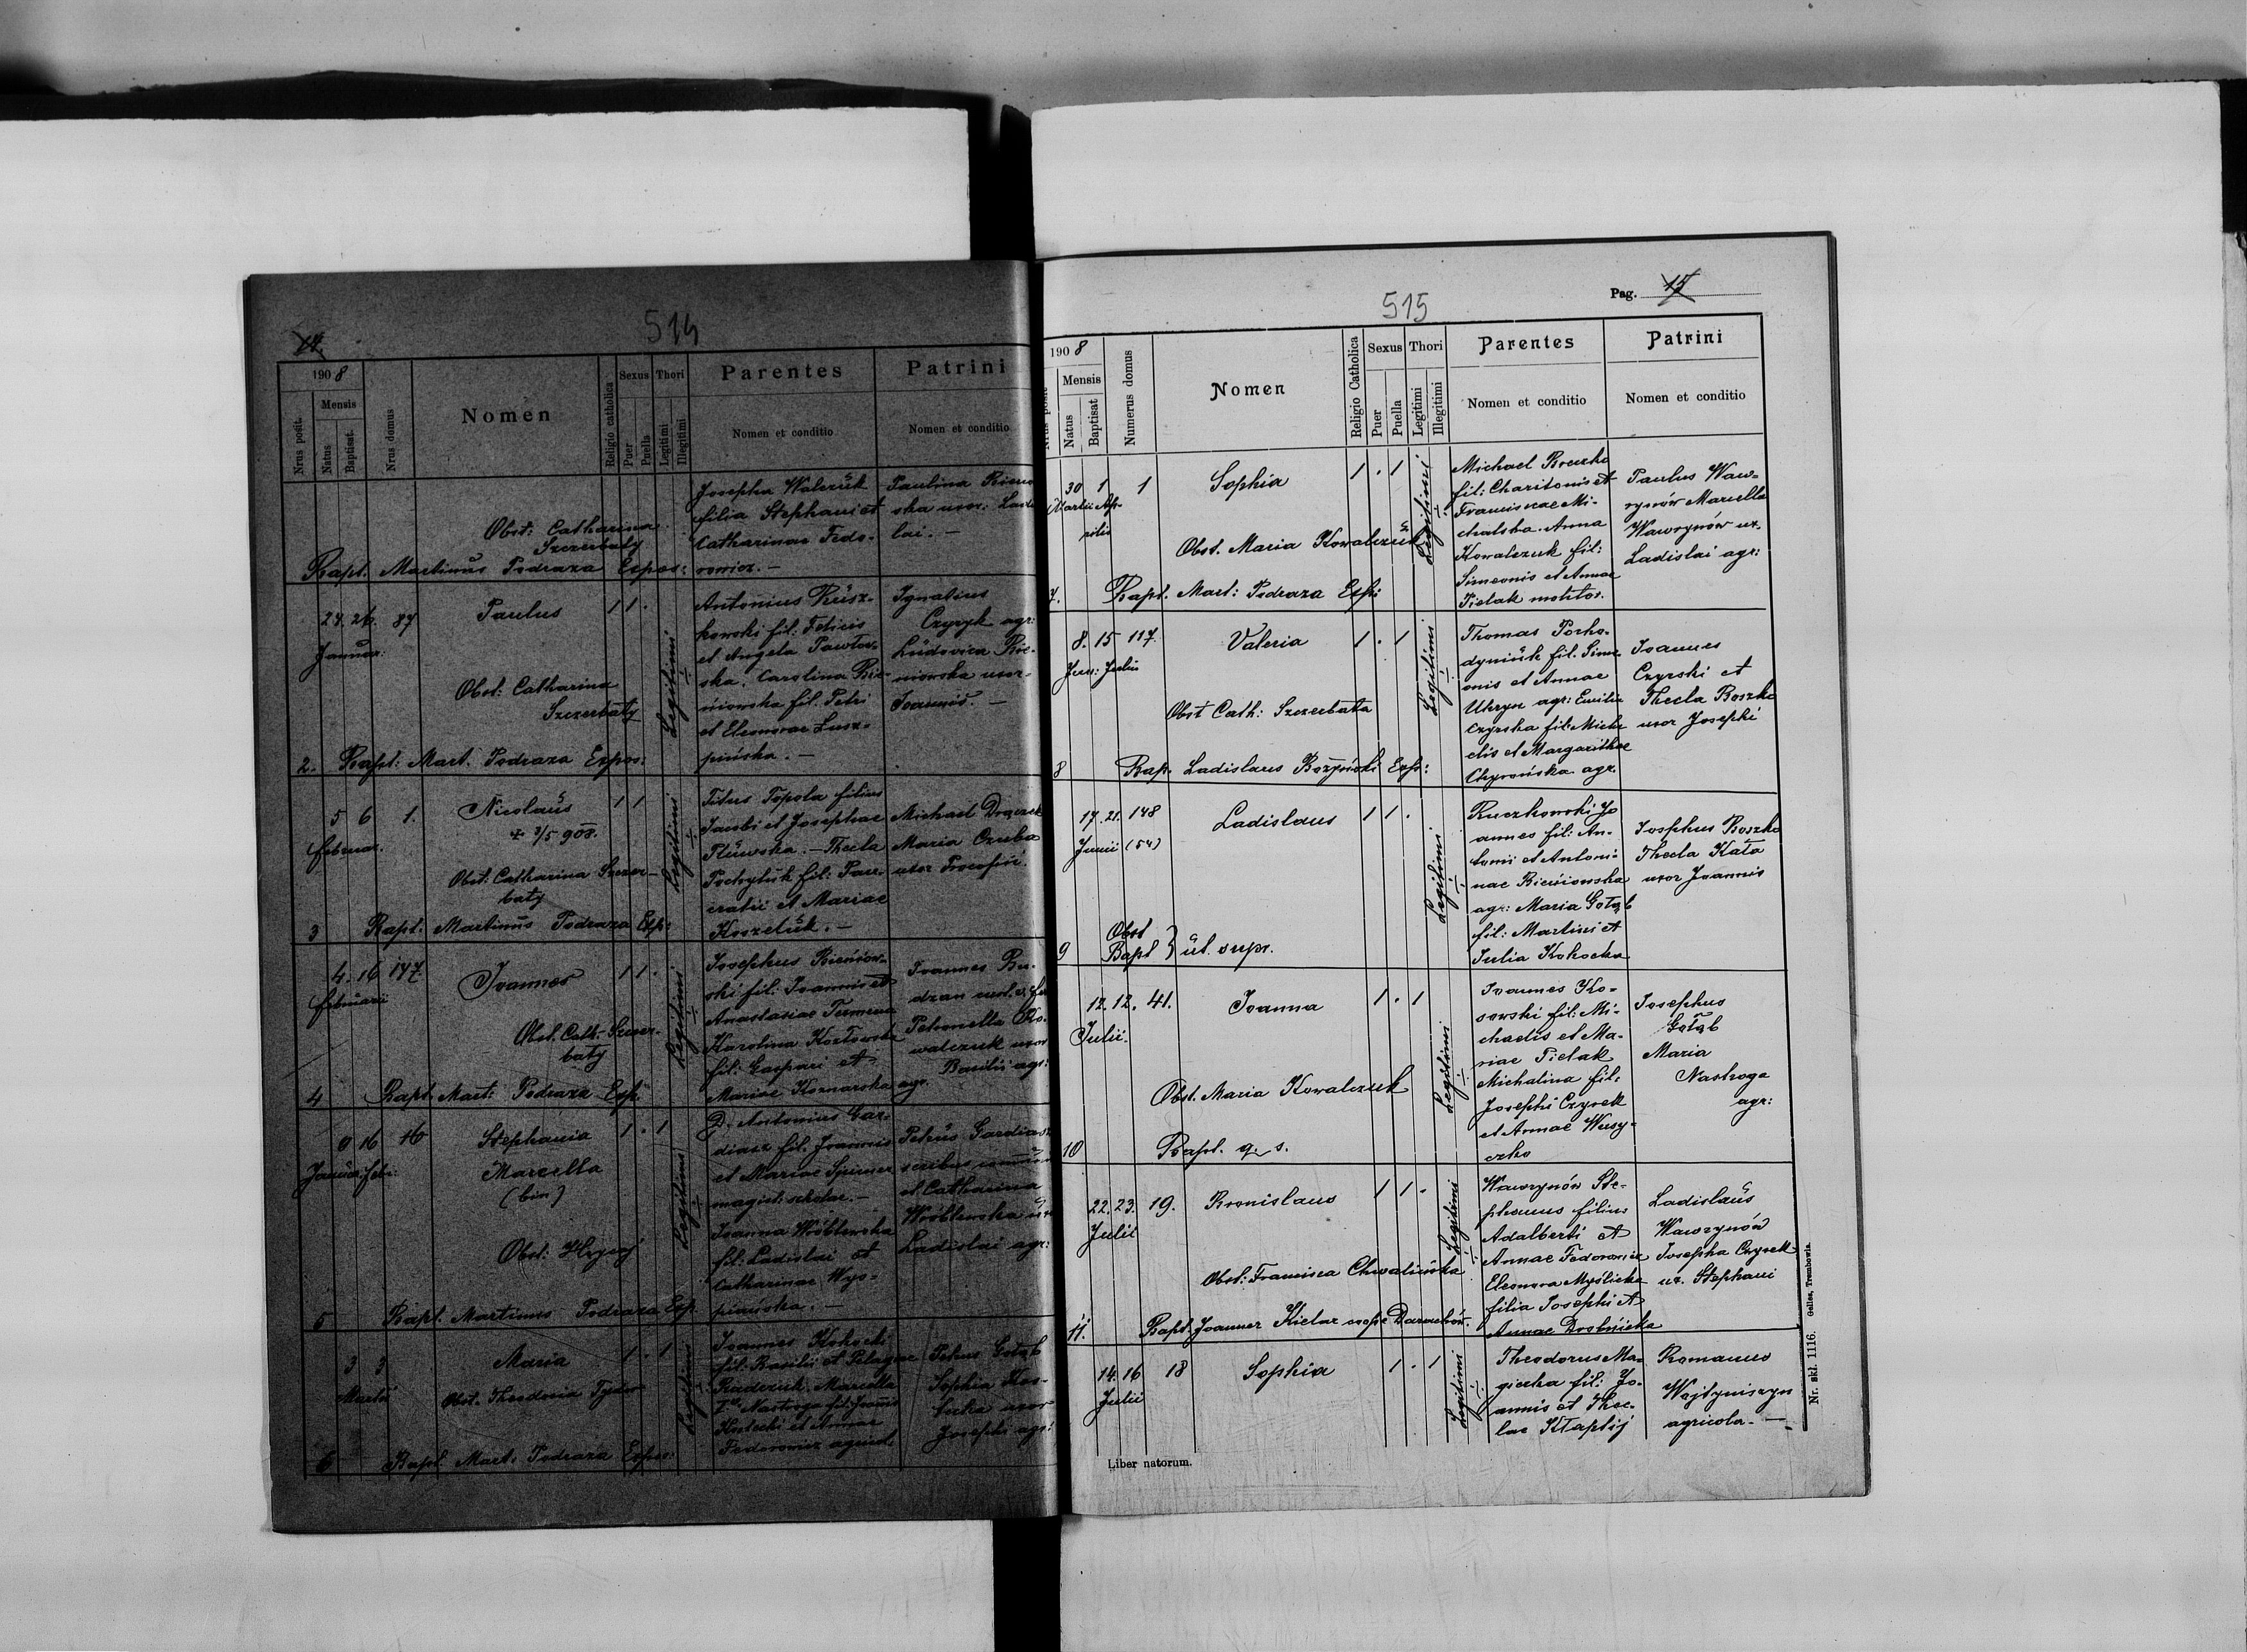 514
14
1908
Mensis
Nrus posit.
Natus
Baptisat.
Nrus domus
Nomen
Religio catholica
Sexus
Puer
Puella
Thori
Legitimi
Illegitimi
Parentes
Nomen et conditio
Patrini
Nomen et conditio
Obst: Catharina
Szczerbaty
Bapt. Martinus Podraza Expos:
Josepha Walczuk
filia Stephani et
Catharinae Fedo-
rowicz. —
Paulina
ska uxor:
lai. —
2.
24. 26. 87
Januar:
Paulus
1 1 .
Obst: Catharina
Szczerbaty
Bapt: Mart. Podraza Expos:
Legitimi
Antonius
kowski fil: Felicis
et Angela Pawłow-
ska. Carolina Bie-
niowska fil. Petri
et Eleonorae
pińska. —
Ignatius
Czyryk agr:
Ludovica
niowska uxor
Joannis. —
3
5 6 1.
Februar.
Nicolaus
+ 3/5 908.
1 1
Obst: Catharina Szczer-
baty
Bapt. Martinus Podraza Exp:
Legitimi
Titus Topola filius
Jacobi et Josephae
Thecla
fil: Pan-
cratii et Mariae
Koszeluk. —
Michael
Maria Czuba
uxor Procopii.
4
4. 16 147
Februarii
Joannes
1 1 .
Obst. Cath. Szczer-
baty
Bapt. Mart: Podraza Exp:
Legitimi
Josephus Bieniow-
ski fil: Joannis et
Anastasiae
Karolina Kozłowska
fil: Gaspari et
Mariae agr.
Joannes Bu-
dzan
Petronella Ko-
walczuk uxor
Basilii agr:
5
9 16 46
Januar. Febr:
Stephania
Marcella
(bin)
1 . 1
Obst: Hrycij
Bapt. Martinus Podraza Exp.
Legitimi
D. Antonius Gar-
diasz fil. Joannis
et Mariae
magist. scholae. —
Joanna Wróblewska
fil: Ladislai et
Catharinae Wys-
piańska. —
Petrus Gardiasz
scribus
et Catharina
Wróblewska
Ladislai agr:
6
3 3
Martii
Maria
1 . 1
Obst. Theodosia
Bapt. Mart. Podraza Expos:
Legitimi
Joannes Kohocki
fil: Basilii et Pelagiae
Marcella
Nastroga fil: Joannis
et Annae
Fedorowicz agricol.
Petrus Gołąb
Sophia Kos-
tecka uxor
Josephi agr:
515
Pag. 15
1908
Mensis
Natus
Baptisat
Numerus domus
Nomen
Religio Catholica
Sexus
Puer
Puella
Thori
Legitimi
Illegitimi
Parentes
Nomen et conditio
Patrini
Nomen et conditio
7.
30 1 1
Martii Ap-
rilis
Sophia
1 . 1
Obst. Maria Kowalczuk
Bapt. Mart: Podraza Exp:
Legitimi
Michael Boczko
fil: Charitonis et
Franciscae Mi-
chalska. Anna
Kowalczuk fil:
Simeonis et Annae
Pielak molitor.
Paulus Waw-
rynów Marcella
Wawrynów ux.
Ladislai agr:
8
8. 15 117.
Jun: Julii
Valeria
1 . 1
Obst Cath: Szczerbata
Bap. Ladislaus Bożyński Exp:
Legitimi
Thomas Porho-
dyniuk fil. Sime-
onis et Annae
Uhryn agr: Emilia
Czyrska fil: Micha-
elis et Margarithae
Chyrońska agr.
Joannes
Czyrski et
Thecla Boszko
uxor Josephi
9
17. 21. 148
Junii (54)
Ladislaus
1 1 .
Obst
Bapt } ut supr.
Legitimi
Ruczkowski Jo
annes fil: An-
tonii et Antoni-
nae Bieniowska
agr: Maria Gołąb
fil: Martini et
Julia Kohocka
Josephus Boszko
Thecla Kała
uxor Joannis
10
12. 12. 41.
Julii.
Joanna
1 . 1
Obst. Maria Kowalczuk
Bapt. q. s.
Legitimi
Joannes Ko-
sowski fil: Mi-
chaelis et Ma-
riae Pielak
Michalina fil:
Josephi Czyrek
et Annae Wusy-
czko
Josephus
Gołąb
Maria
Nastroga
agr:
11.
22. 23. 19.
Julii
Bronislaus
1 1 .
Obst: Francisca Chwalińska
Bapt. Joannes Kielar coop: Darachów.
Legitimi
Wawrynów Ste-
phanus filius
Adalberti et
Annae Fedorowicz
Eleonora Myślicka
filia Josephi et
Annae Drobnicka
Ladislaus
Wawrynów
Josepha Czyrek
ux. Stephani
14. 16 18
Julii
Sophia
1 . 1
Legitimi
Theodorus Ma-
gierka fil: Jo-
annis et Thec-
lae Kłaptij
Romanus
Wojtyniszyn
agricola. —
Liber natorum.
Nr. skł. 1116. Gelles, Trembowla.